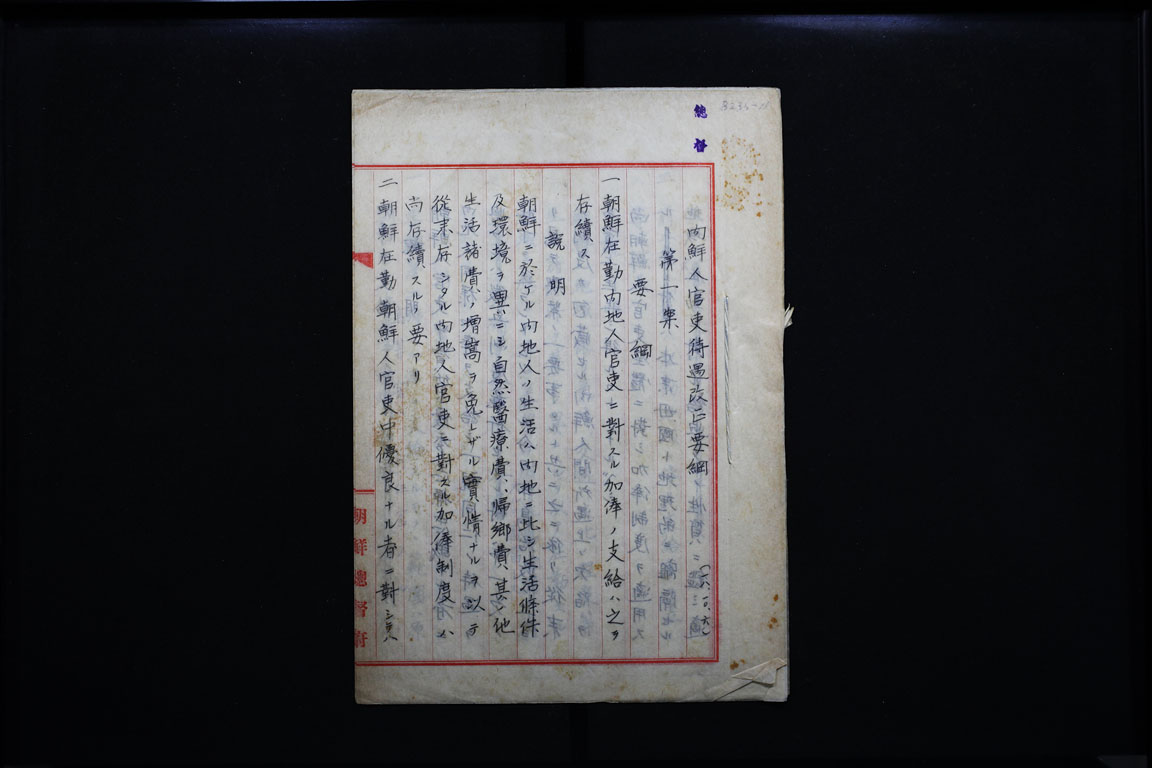 總督
内鮮人官吏待遇改正要綱
(一六、一〇、六、)
第一案
要綱
一朝鮮在勤内地人官吏ニ對スル加俸ノ支給ハ之ヲ
存續ス
説明
朝鮮ニ於ケル内地人ノ生活ハ内地ニ比シ生活條件
及環境ヲ異ニシ自然醫療費、帰郷費、其ノ他
生活諸費ノ増嵩ヲ免レザル實情ナルヲ以テ
從來存シタル内地人官吏ニ對スル加俸制度ハ
尚存續スルノ要アリ
二朝鮮在勤朝鮮人官吏中優良ナル者ニ對シテハ
朝鮮總督府